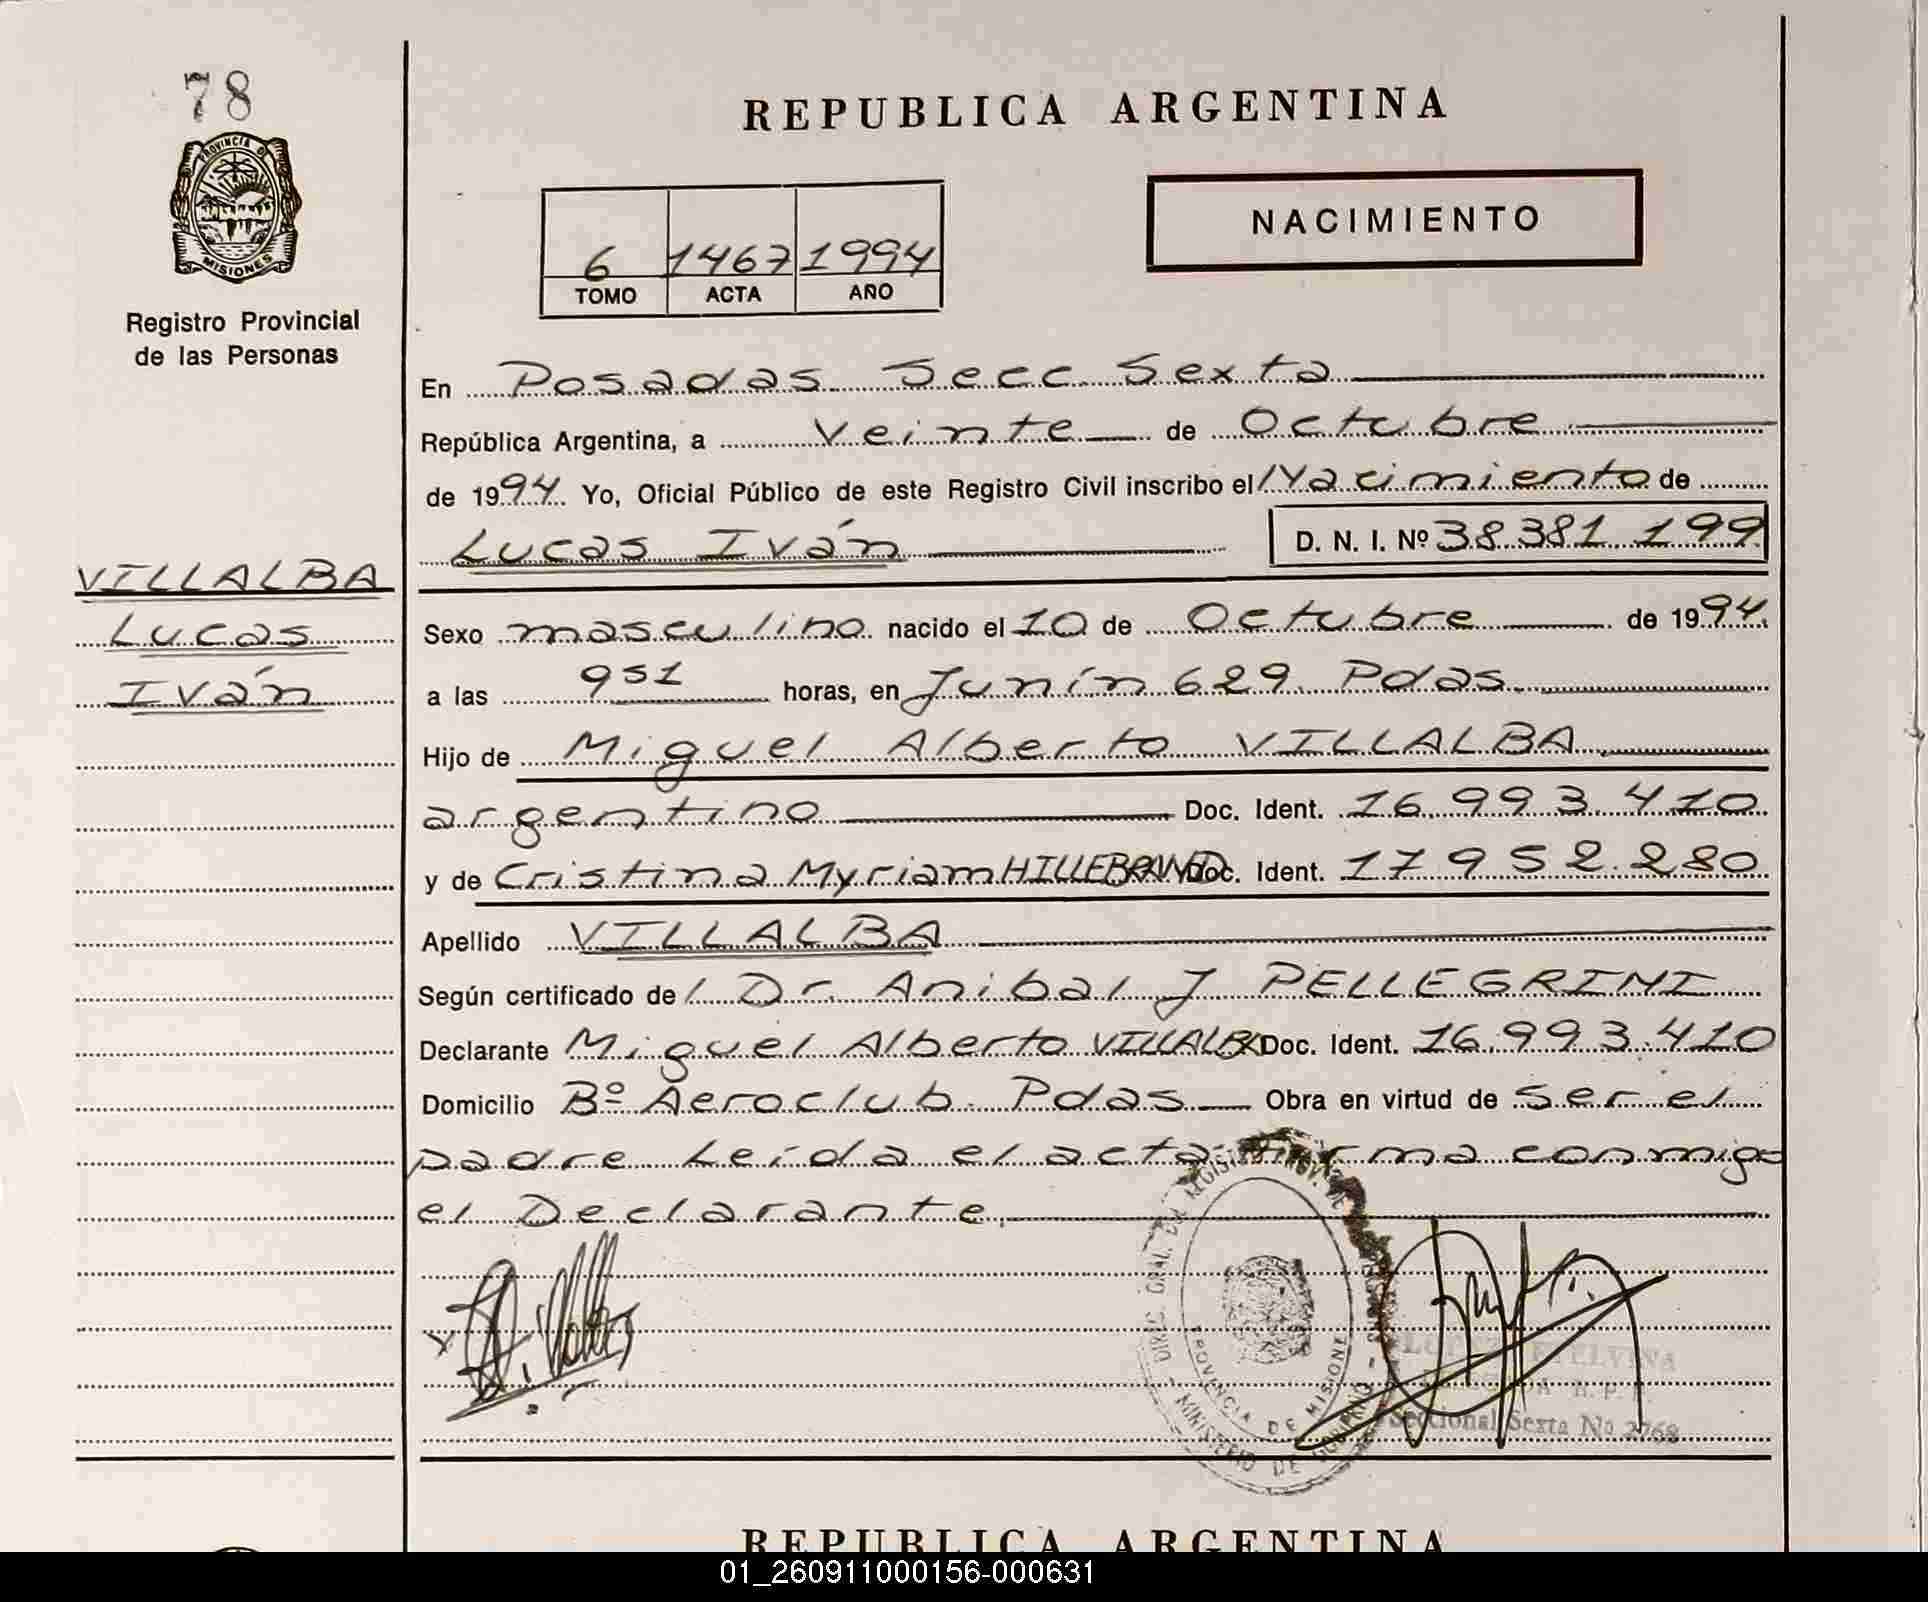 78
PROVINCIA DE
MISIONES
Registro Provincial
de las Personas
VILLALBA
Lucas
Iván
REPUBLICA ARGENTINA
6 1467 1994
TOMO ACTA AÑO
NACIMIENTO
En Posadas Secc Sexta
República Argentina, a Veinte de Octubre
de 1994 Yo, Oficial Público de este Registro Civil inscribo el Nacimiento de
Lucas Iván D. N. I. Nº 38.381.199
Sexo masculino nacido el 10 de Octubre de 1994.
a las 951 horas, en Junín 629. Pdas.
Hijo de Miguel Alberto VILLALBA
argentino Doc. Ident. 16.993.410
y de Cristina Myriam HILLEBRAND Doc. Ident. 17.952.280
Apellido VILLALBA
Según certificado de / Dr. Anibal J PELLEGRINI
Declarante Miguel Alberto VILLALBA Doc. Ident. 16.993.410
Domicilio Bº Aeroclub. Pdas Obra en virtud de ser el
padre Leída el acta firma conmigo
el Declarante.
DIREC. GRAL. DEL REGISTRO PROV. DE
MINISTERIO DE GOBIERNO
PROVINCIA DE MISIONES
ETELVINA
Seccional Sexta No 2768
REPUBLICA ARGENTINA
01_260911000156-000631